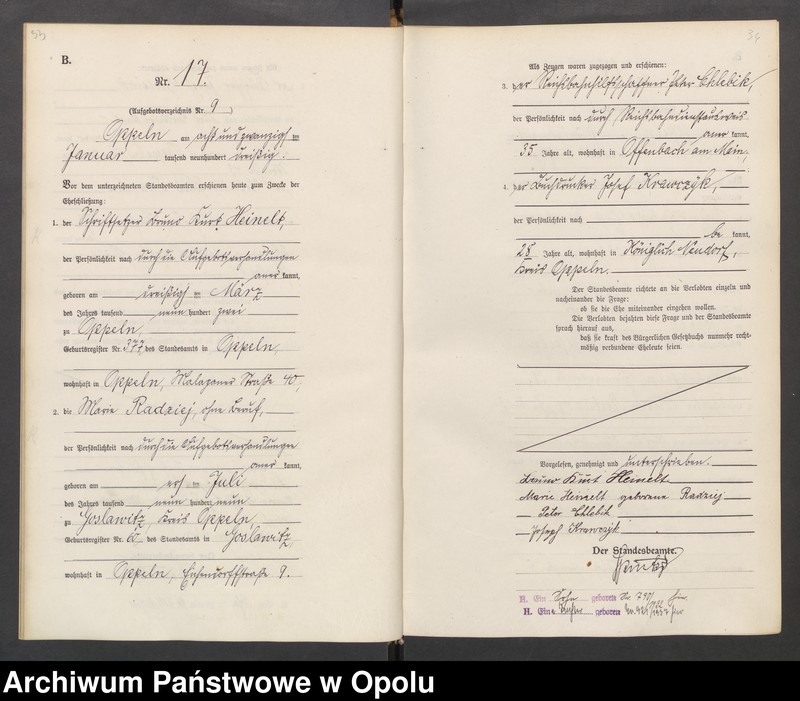 B.
Nr. 17.
(Aufgebotsverzeichnis Nr. 9)
Oppeln am achtundzwanzigsten
Januar tausend neunhundert dreißig.
Vor dem unterzeichneten Standesbeamten erschienen heute zum Zwecke der
Eheschließung:
1. der Schriftsetzer Bruno Kurt Heinelt,
der Persönlichkeit nach durch die Aufgebotsverhandlungen
anerkannt,
geboren am dreißigsten März
des Jahres tausend neunhundert zwei
zu Oppeln,
Geburtsregister Nr. 377 des Standesamts in Oppeln,
wohnhaft in Oppeln, Malapaner Straße 40,
2. die Marie Radziej, ohne Beruf,
der Persönlichkeit nach durch die Aufgebotsverhandlungen
anerkannt,
geboren am ersten Juli
des Jahres tausend neunhundert neun
zu Goslawitz Kreis Oppeln
Geburtsregister Nr. 60 des Standesamts in Goslawitz
wohnhaft in Oppeln, Eichendorffstraße 9.
Als Zeugen waren zugezogen und erschienen:
3. der Reichsbahnhilfsschaffner Peter Chlebik,
der Persönlichkeit nach durch Reichsbahndienstausweis
anerkannt,
35 Jahre alt, wohnhaft in Offenbach am Main,
4. der Buchdrucker Josef Krawczyk,
der Persönlichkeit nach
bekannt,
28 Jahre alt, wohnhaft in Königlich Neudorf,
Kreis Oppeln.
Der Standesbeamte richtete an die Verlobten einzeln und
nacheinander die Frage:
ob sie die Ehe miteinander eingehen wollen.
Die Verlobten bejahten diese Frage und der Standesbeamte
sprach hierauf aus,
daß sie kraft des Bürgerlichen Gesetzbuchs nunmehr recht-
mäßig verbundene Eheleute seien.
Vorgelesen, genehmigt und unterschrieben.
Bruno Kurt Heinelt
Marie Heinelt geborene Radziej
Peter Chlebik
Joseph Krawczyk
Der Standesbeamte.
H. Ein Sohn geboren Nr.
H. Eine Tochter geboren
Archiwum Państwowe w Opolu